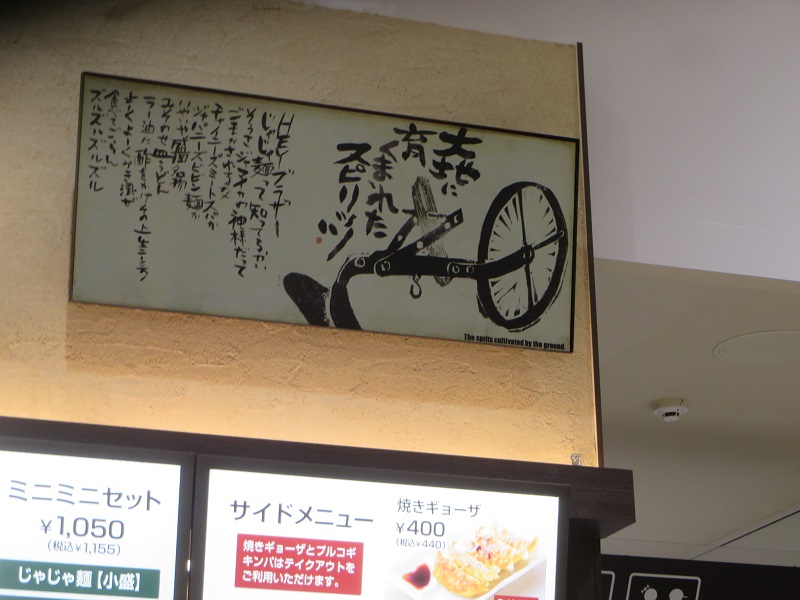 大地に
育
くまれた
スピリッツ
HEYブラザー
じゃじゃ麺って知ってるかい
そいつぁジャマイカの神様だって
チャイニーズミートスパか
ジャパニーズビビン麺か
いやいや盛岡
みそのせ皿うどん
ラー油に酢をかけ
よーくよーくかき混ぜ
食べてごらん
ズルズルズルズル
The sprits cultivated by the ground.
ミニミニセット
¥1,050
(税込¥1,155)
じゃじゃ麺【小盛】
サイドメニュー
焼きギョーザとプルコギ
キンパはテイクアウトを
ご利用いただけます。
焼きギョーザ
¥400
(税込¥440)